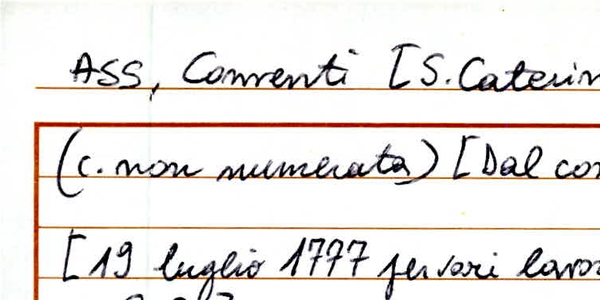 ASS, Conventi [S. Caterin
(c. non numerata) [Dal con
[19 luglio 1777 per vari lavor